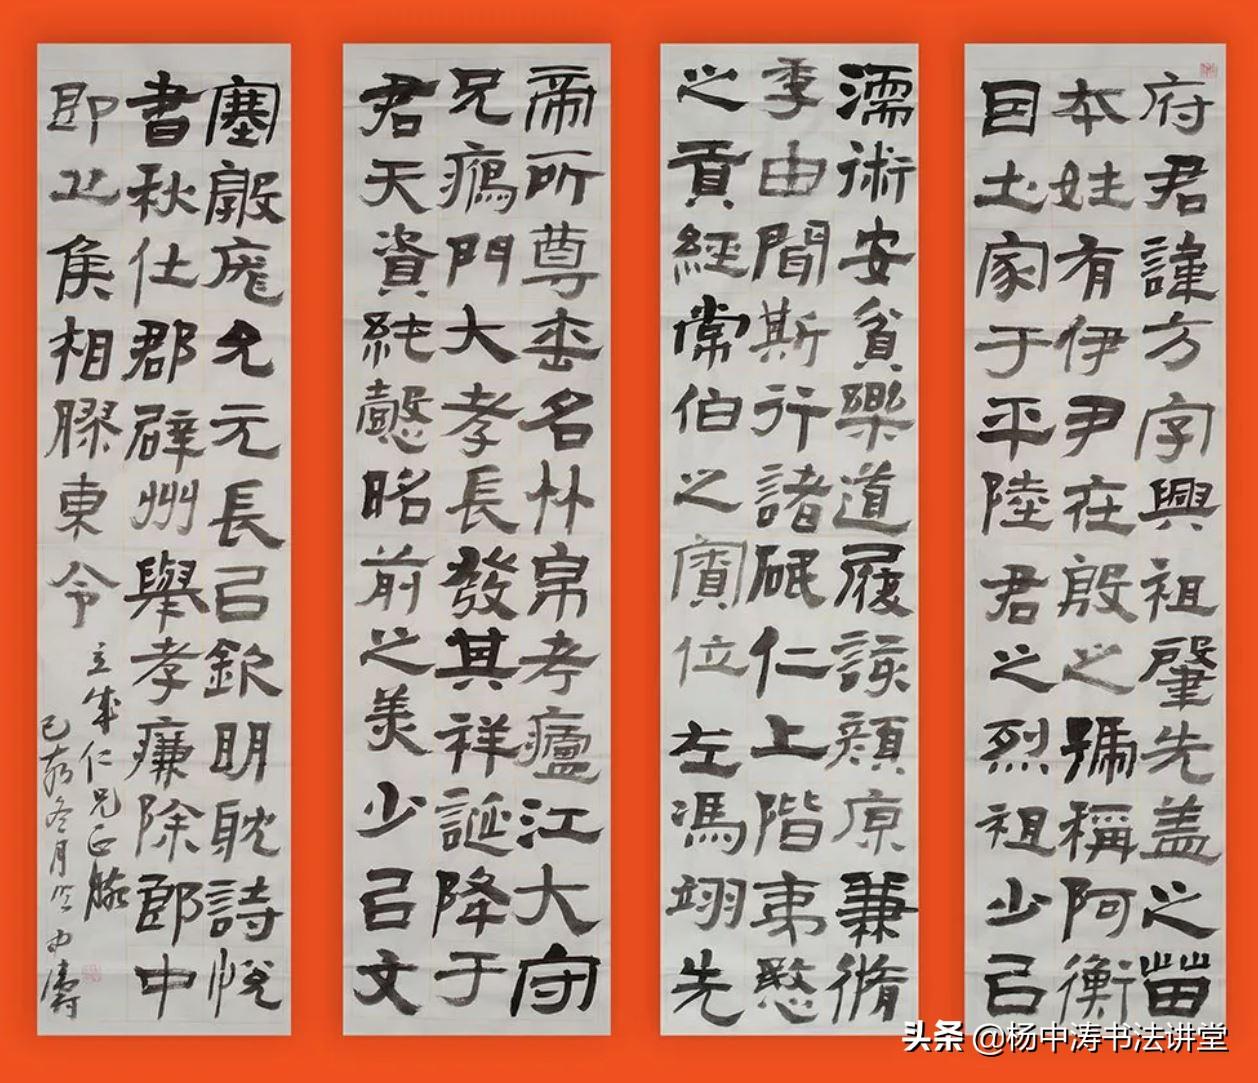 府君諱方字興祖肇先蓋之苗
本姓有伊尹在殷之號稱阿衡
因土家于平陸君之烈祖少㠯
濡術安貧樂道履該顏原兼脩
季由聞斯行諸砥仁上階夷愍
之貢經常伯之寮位左馮翊先
帝所尊垂名竹帛考廬江大守
兄鴈門大孝長發其祥誕降于
君天資純懿昭前之美少㠯文
塞敦庬允元長㠯欽明耽詩悅
書秋仕郡辟州舉孝廉除郎中
即丘侯相膠東令
立成仁兄正腕
己亥冬月 中濤
头条 @杨中涛书法讲堂